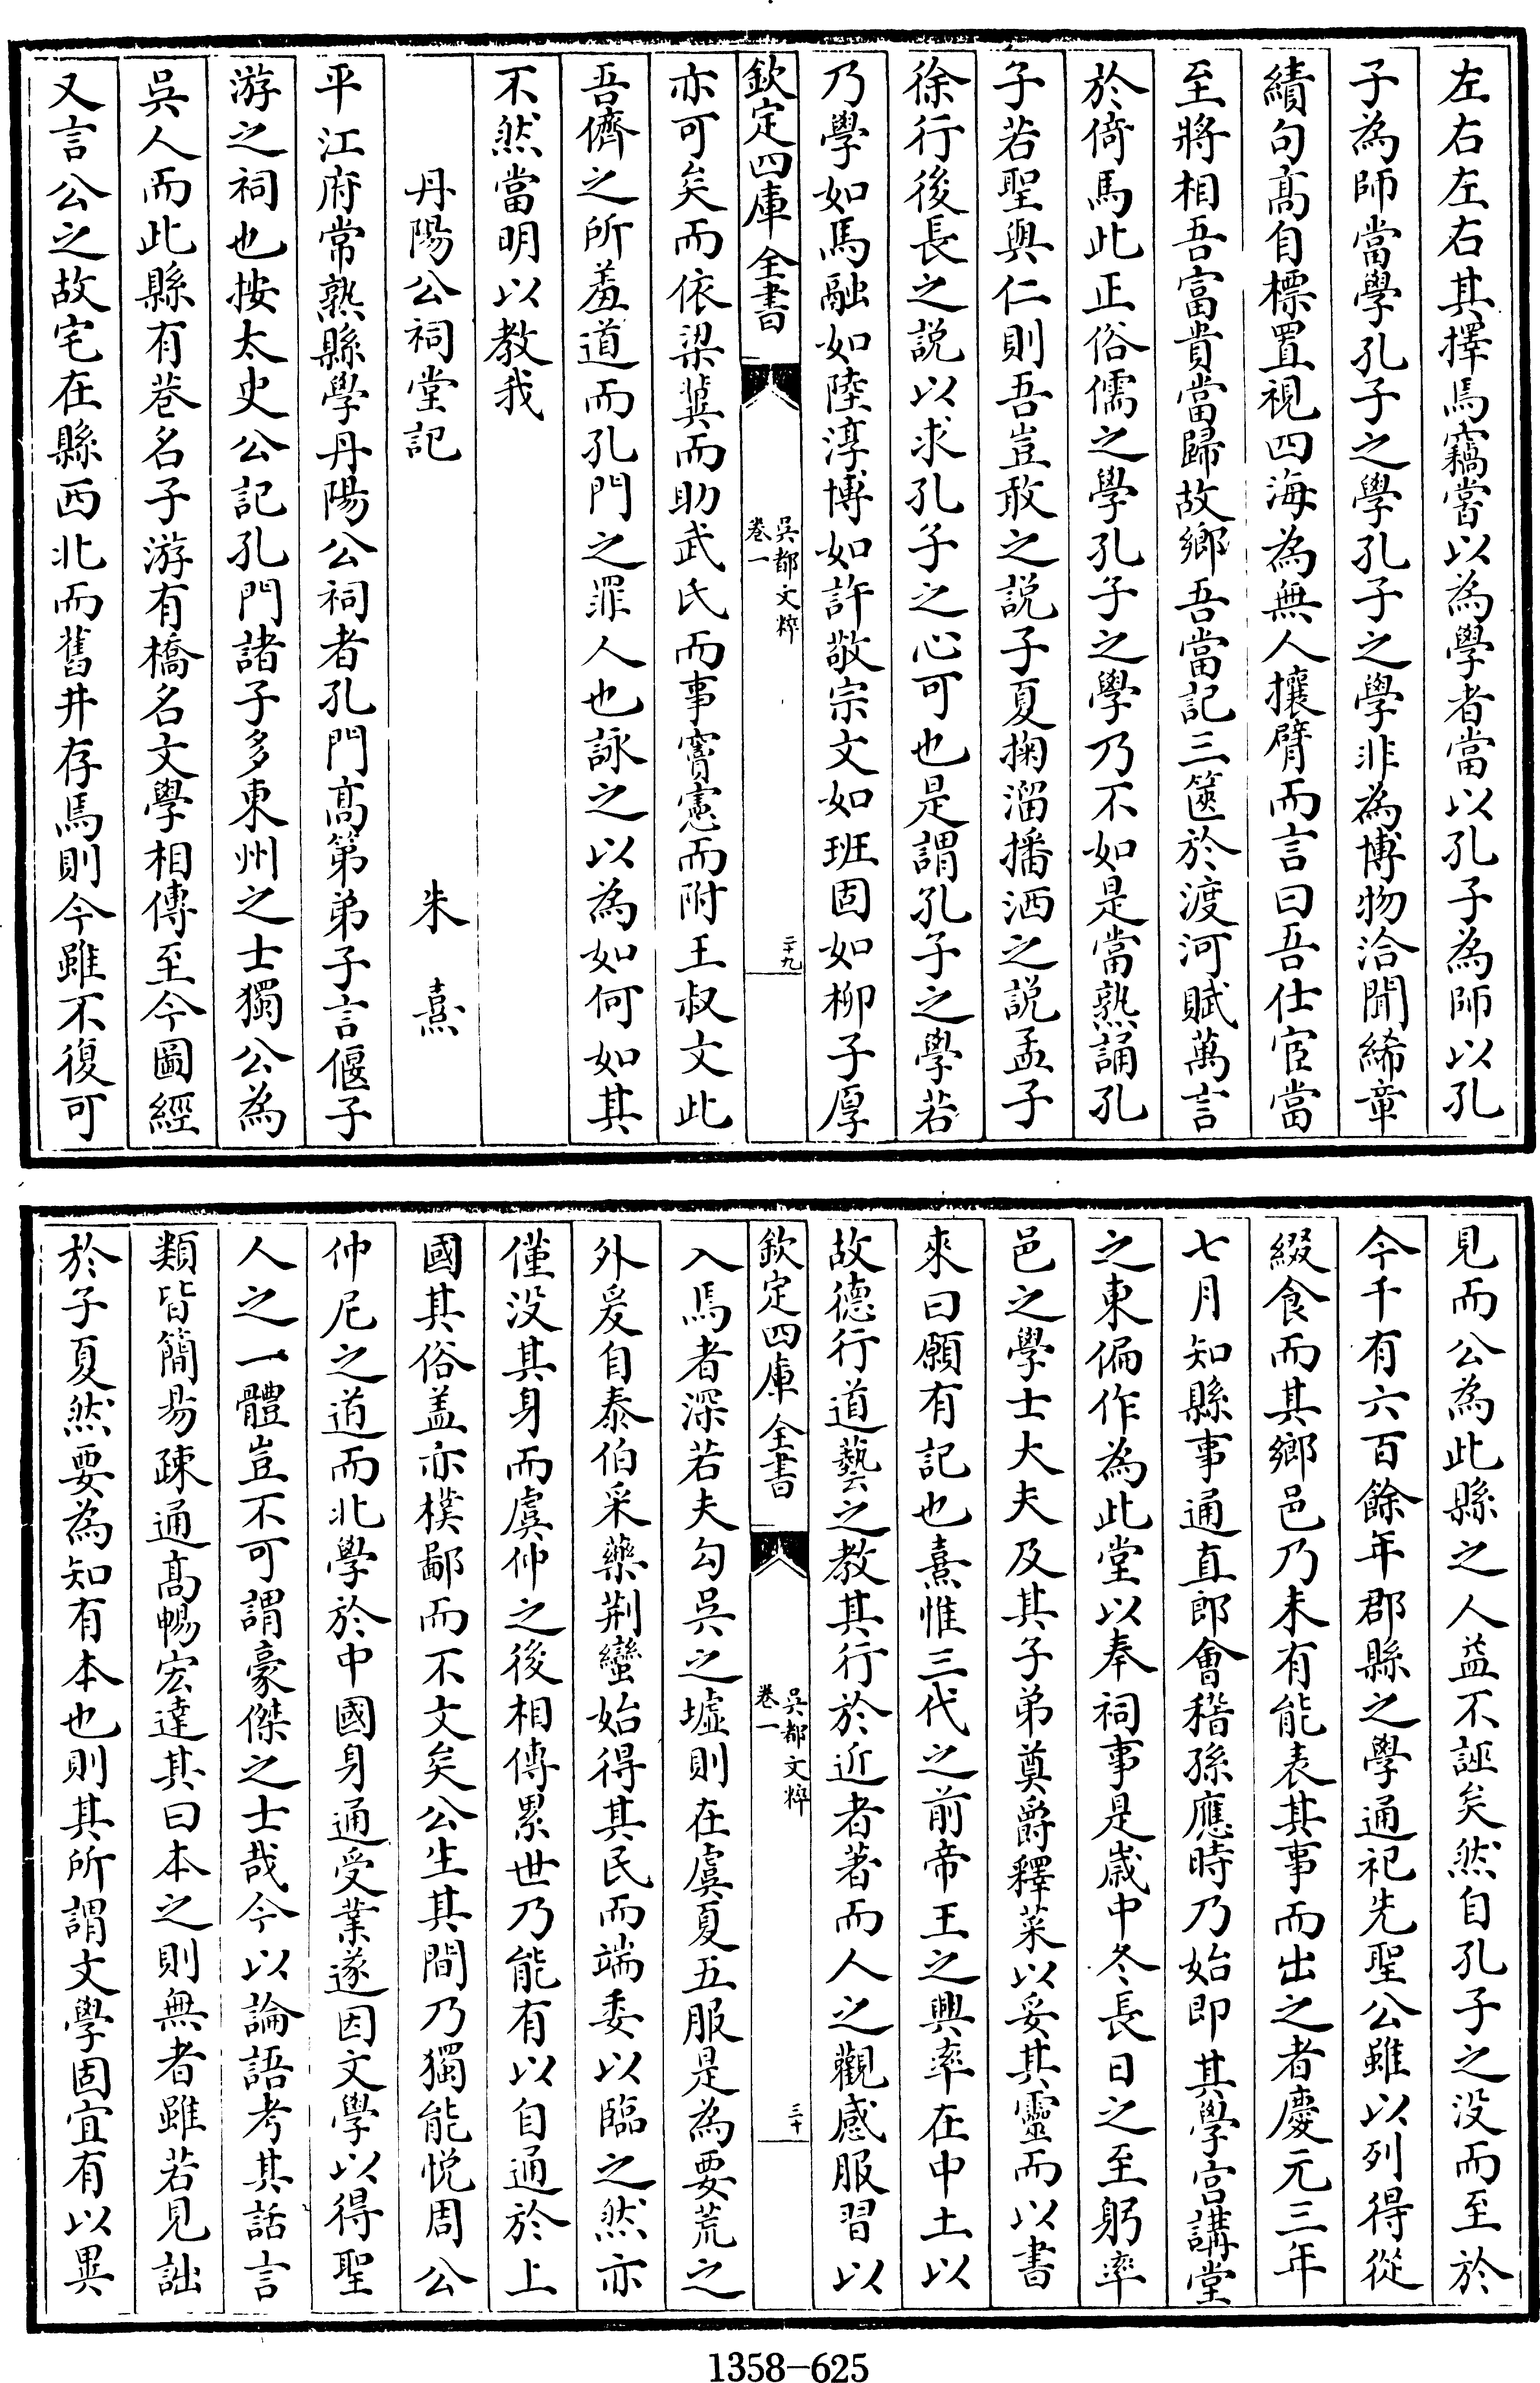 左右左右其擇焉竊嘗以為學者當以孔子為師以孔
子為師當學孔子之學孔子之學非為博物洽聞絺章
繢句髙自標置視四海為無人攘臂而言曰吾仕宦當
至將相吾富貴當歸故鄉吾當記三篋於渡河賦萬言
於倚馬此正俗儒之學孔子之學乃不如是當熟誦孔
子若聖與仁則吾豈敢之説子夏掬溜播洒之説孟子
徐行後長之説以求孔子之心可也是謂孔子之學若
乃學如馬融如陸淳博如許敬宗文如班固如柳子厚
欽定四庫全書
吳都文粹
卷一
二十九
亦可矣而依梁冀而助武氏而事竇憲而附王叔文此
吾儕之所羞道而孔門之罪人也詠之以為如何如其
不然當明以教我
丹陽公祠堂記
朱熹
平江府常熟縣學丹陽公祠者孔門髙第弟子言偃子
游之祠也按太史公記孔門諸子多東州之士獨公為
吳人而此縣有巷名子游有橋名文學相傳至今圖經
又言公之故宅在縣西北而舊井存焉則今雖不復可
見而公為此縣之人益不誣矣然自孔子之没而至於
今千有六百餘年郡縣之學通祀先聖公雖以列得從
綴食而其鄉邑乃未有能表其事而出之者慶元三年
七月知縣事通直郎會稽孫應時乃始即其學宫講堂
之東偏作為此堂以奉祠事是歲中冬長日之至躬率
邑之學士大夫及其子弟奠爵釋菜以妥其靈而以書
來曰願有記也熹惟三代之前帝王之興率在中土以
故德行道藝之教其行於近者著而人之觀感服習以
欽定四庫全書
吳都文粹
卷一
三十
入焉者深若夫勾吳之墟則在虞夏五服是為要荒之
外爰自泰伯采藥荆蠻始得其民而端委以臨之然亦
僅没其身而虞仲之後相傳累世乃能有以自通於上
國其俗盖亦樸鄙而不文矣公生其間乃獨能悦周公
仲尼之道而北學於中國身通受業遂因文學以得聖
人之一體豈不可謂豪傑之士哉今以論語考其話言
類皆簡易疎通髙暢宏達其曰本之則無者雖若見詘
於子夏然要為知有本也則其所謂文學固宜有以異
1358-625